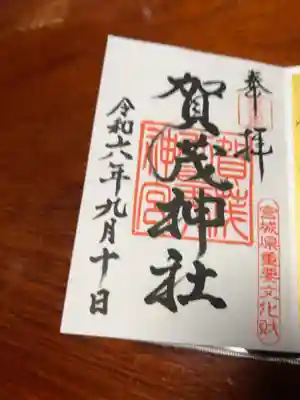 奉拝
賀茂神社
令和六年九月十日
宮城県重要文化財